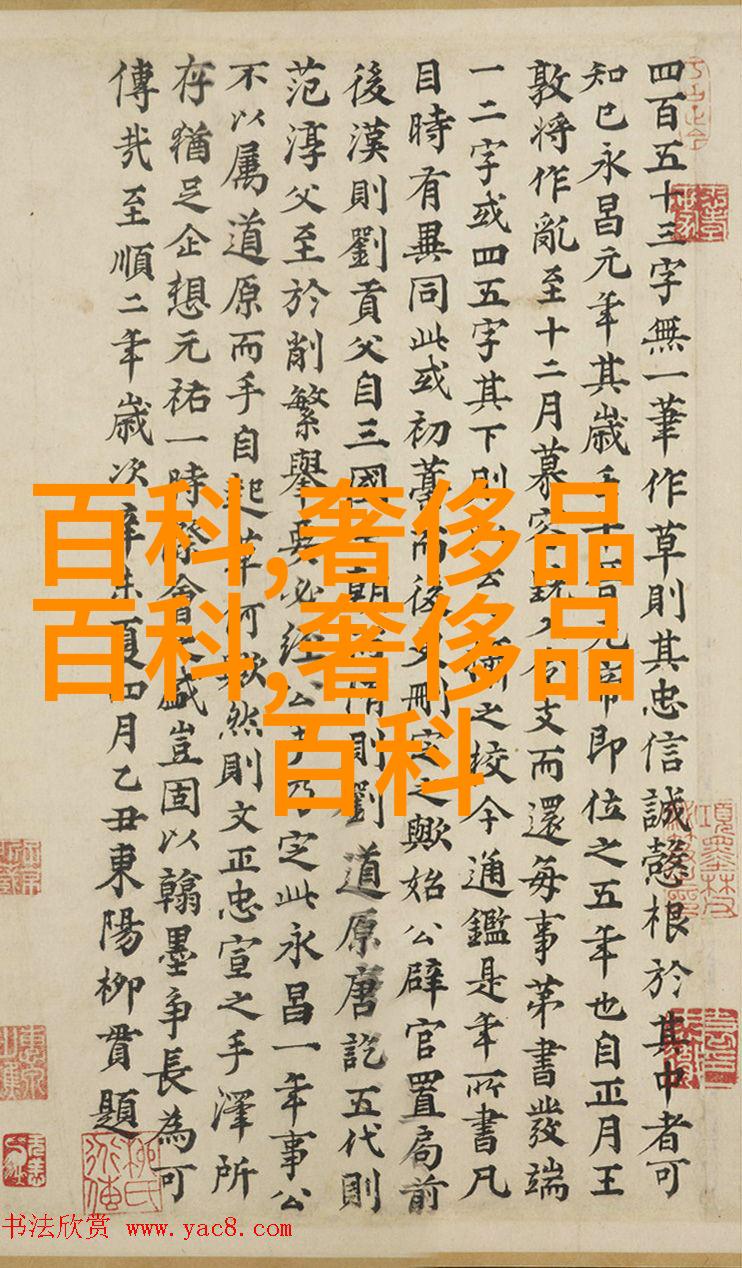 四百五十三字無一筆作草則其忠信誠慤根於其中者可
知已永昌元年其歲元帝即位之五年也自正月王
敦將作亂至十二月慕容支而還每事第書發端
一二字或四五字其下則之校今通鑑是年所書凡
目時有異同此或初藁而後刪定之歟始公辟官置局前
後漢則劉貢父自三國隋則劉道原唐訖五代則
范淳父至於削繁舉要必經公手乃定此永昌一年事公
不以屬道原而手自起草何歟然則文正忠宣之手澤所
存猶足企想元祐一時際會盛豈固以翰墨爭長為可
傳哉至順二年歲次辛未夏四月乙丑東陽柳貫題
百科,奢侈品
百科,奢侈品
百科
书法欣赏 www.yac8.com